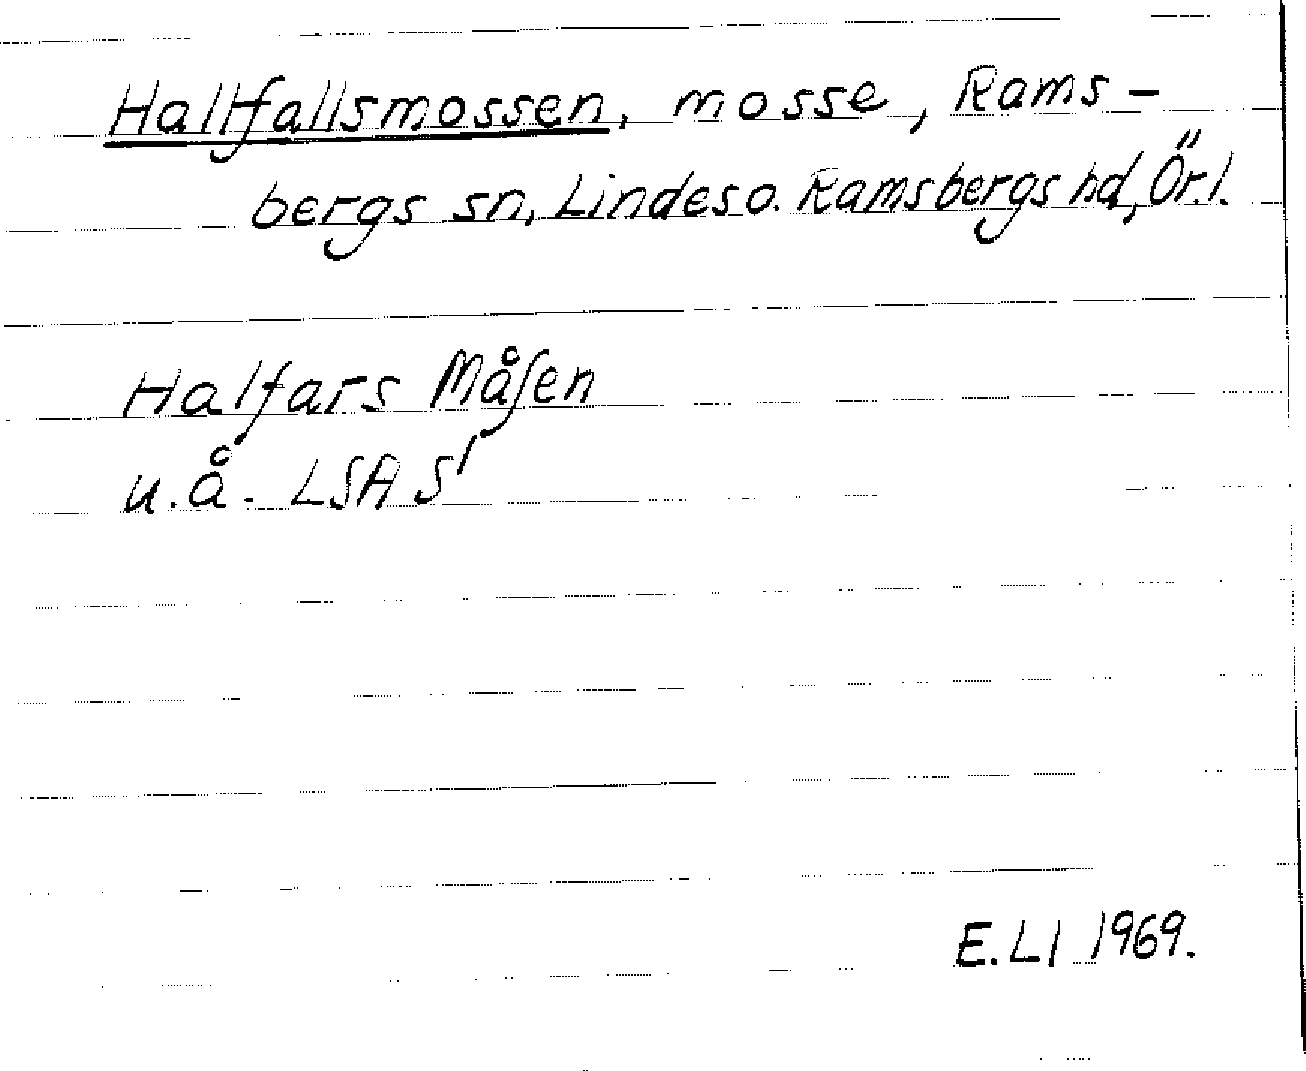 Hallfallsmossen, mosse, Rams-
bergs sn, Lindes o. Ramsbergs hd, Ör.l.
Halfars Måsen
u.å. LSA S1
E.Ll 1969.